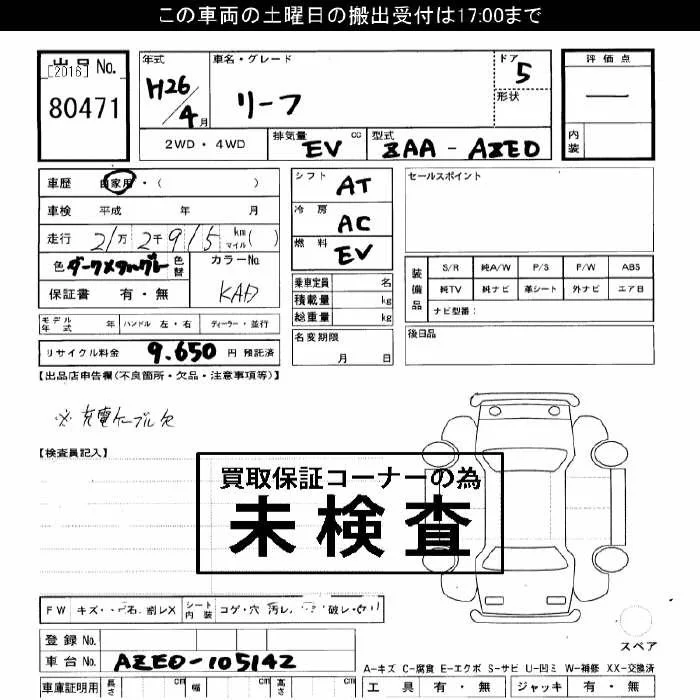 この車両の土曜日の搬出受付は17:00まで
出品No.
[2016]
80471
年式
H26/4月
車名・グレード
リーフ
ドア 5
形状
評価点
一
内装
2WD・4WD
排気量 cc
EV
型式
ZAA-AZE0
車歴 自家用・( )
車検 平成 年 月
走行 2/万 2千 9 1 5 km マイル( )
色 ダークメタルグレー
色替
カラーNo.
KAD
保証書 有・無
モデル年式 年 ハンドル 左・右 ディーラー・並行
リサイクル料金 9.650 円 預託済
シフト AT
冷房 AC
燃料 EV
乗車定員 名
積載量 kg
総重量 kg
名変期限
月 日
セールスポイント
装備品
S/R 純A/W P/S P/W ABS
純TV 純ナビ 革シート 外ナビ エア日
ナビ型番:
後日品
【出品店申告欄(不良箇所・欠品・注意事項等)】
※充電ケーブル欠
【検査員記入】
買取保証コーナーの為
未検査
FW キズ・ 石・割レX
シート内装 コゲ・穴 汚レ・ 破レ・
スペア
登録No.
車台No. AZE0-105142
A-キズ C-腐食 E-エクボ S-サビ U-凹ミ W-補修 XX-交換済
車庫証明用 長さ cm 幅 cm 高さ cm
工具 有・無 ジャッキ 有・無